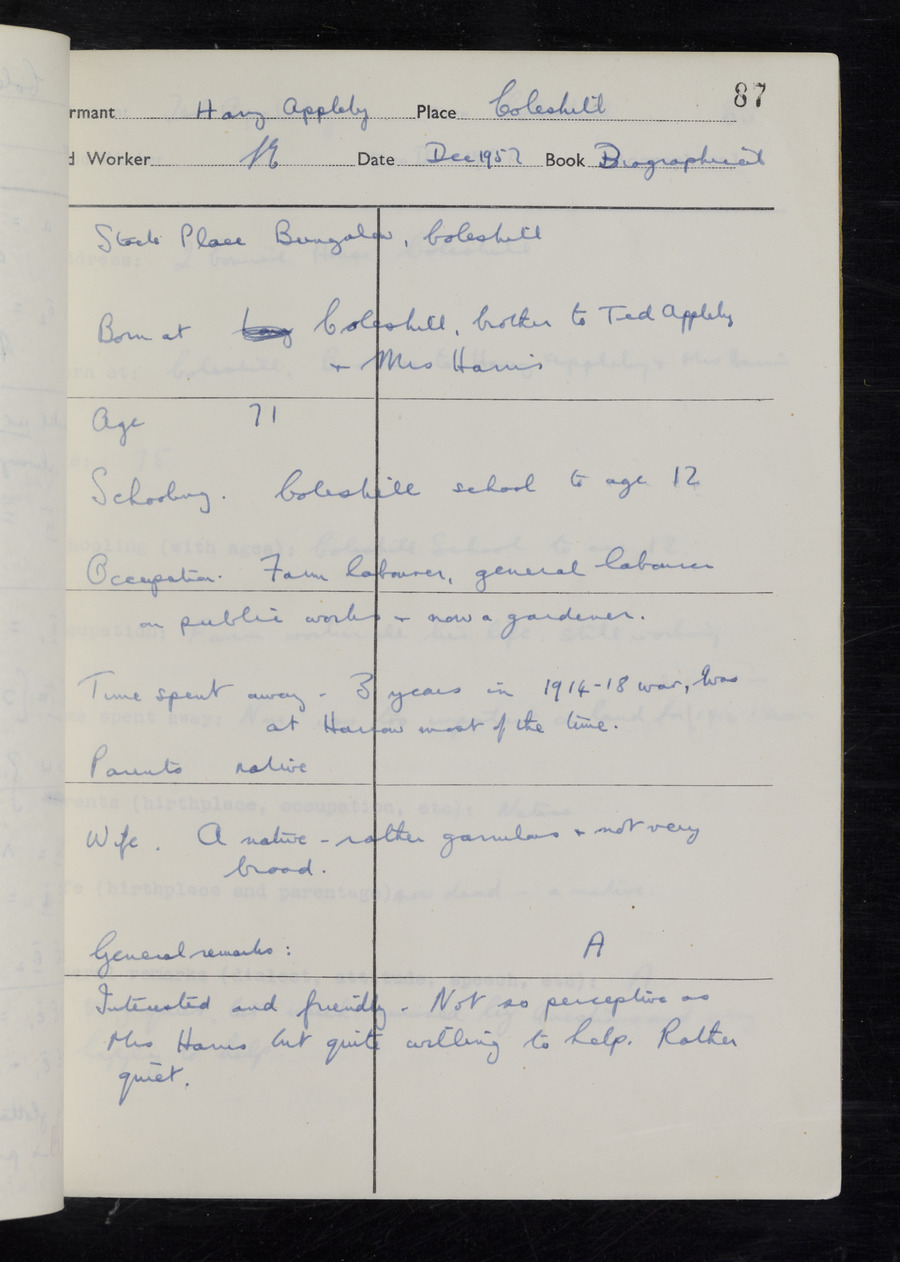 87
rmant Harry Appleby Place Coleshill
d Worker Date Dec 1952 Book Biographical
Stock Place Bungalow, Coleshill
Born at Coleshill, brother to Ted Appleby
+ Mrs Harris
Age 71
Schooling. Coleshill school to age 12
Occupation. Farm labourer, general labourer
on public works + now a gardener.
Time spent away - 3 years in 1914-18 war, was
at Harrow most of the time.
Parents native
Wife. A native - rather garrulous + not very
broad.
General remarks: A
Interested and friendly. Not so perceptive as
Mrs Harris but quite willing to help. Rather
quiet.